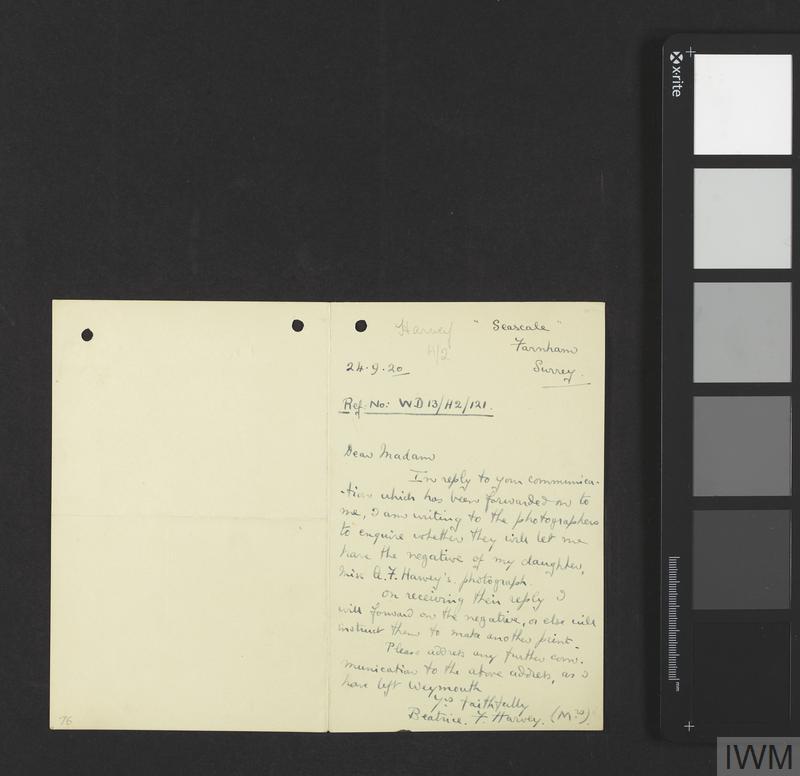 Harvey
H/2
"Seascale"
Farnham
Surrey.
24.9.20
Ref. No: WD13/H2/121.
Dear Madam
In reply to your communica-
-tion which has been forwarded on to
me, I am writing to the photographers
to enquire whether they will let me
have the negative of my daughter,
Miss A. F. Harvey's photograph.
On receiving their reply I
will forward on the negative, or else will
instruct them to make another print.
Please address any further com-
munication to the above address, as I
have left Weymouth
Yrs faithfully
Beatrice. F. Harvey. (Mrs).
76
x-rite
mm
IWM